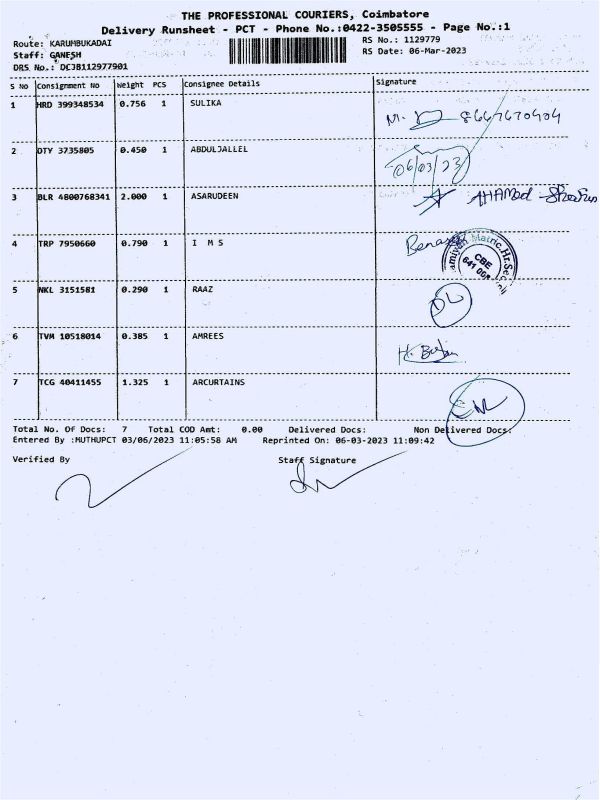 THE PROFESSIONAL COURIERS, Coimbatore
Delivery Runsheet - PCT - Phone No.:0422-3505555 - Page No.:1
Route: KARUMBUKADAI
RS No.: 1129779
Staff: GANESH
RS Date: 06-Mar-2023
DRS No.: DC3B112977901
S No Consignment No Weight PCS Consignee Details Signature
1 HRD 399348534 0.756 1 SULIKA
M. 8667670404
2 DTY 3735805 0.450 1 ABDULJALLEL
06/03/23
3 BLR 4800768341 2.000 1 ASARUDEEN
AHAMed
4 TRP 7950660 0.790 1 I M S
Matric.Hr.Sec
CBE
5 NKL 3151581 0.290 1 RAAZ
6 TVM 10518014 0.385 1 AMREES
7 TCG 40411455 1.325 1 ARCURTAINS
Total No. Of Docs: 7 Total COD Amt: 0.00 Delivered Docs: Non Delivered Docs:
Entered By :MUTHUPCT 03/06/2023 11:05:58 AM Reprinted On: 06-03-2023 11:09:42
Verified By Staff Signature